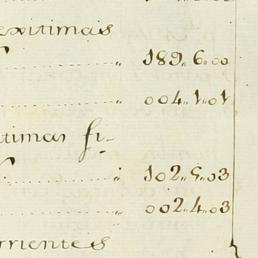 exitimas
189,,6,,00
004,,1,,01
timas fi-
102,,5,,03
002,,4,,03
rrientes